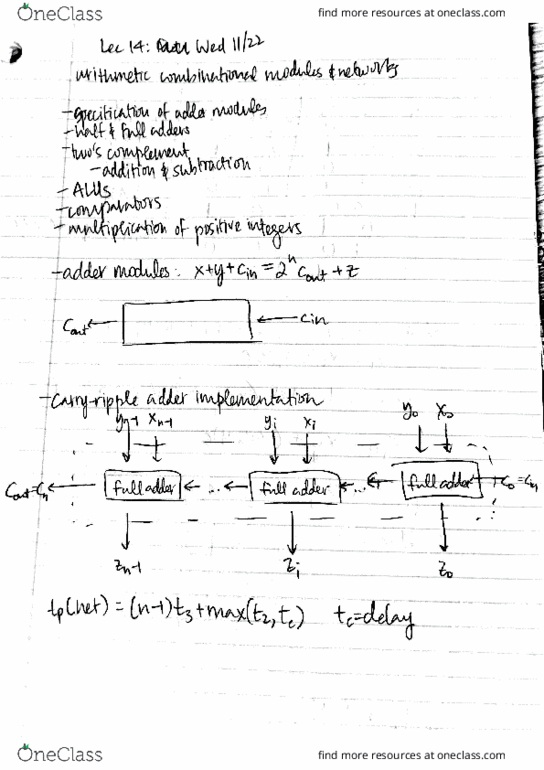 OneClass
find more resources at oneclass.com
Lec 14: Wed 11/22
arithmetic combinational modules & networks
-specification of adder modules
-half & full adders
-two's complement
-addition & subtraction
-ALUs
-comparators
-multiplication of positive integers
-adder modules: x+y+Cin=2^n Cout+z
Cout Cin
-carry-ripple adder implementation
yn-1 xn-1 yi xi y0 x0
Cout=Cn full adder ... full adder ... full adder C0=Cin
zn-1 zi z0
tp(net) = (n-1)t3+max(t2,tc) tc=delay
OneClass
find more resources at oneclass.com